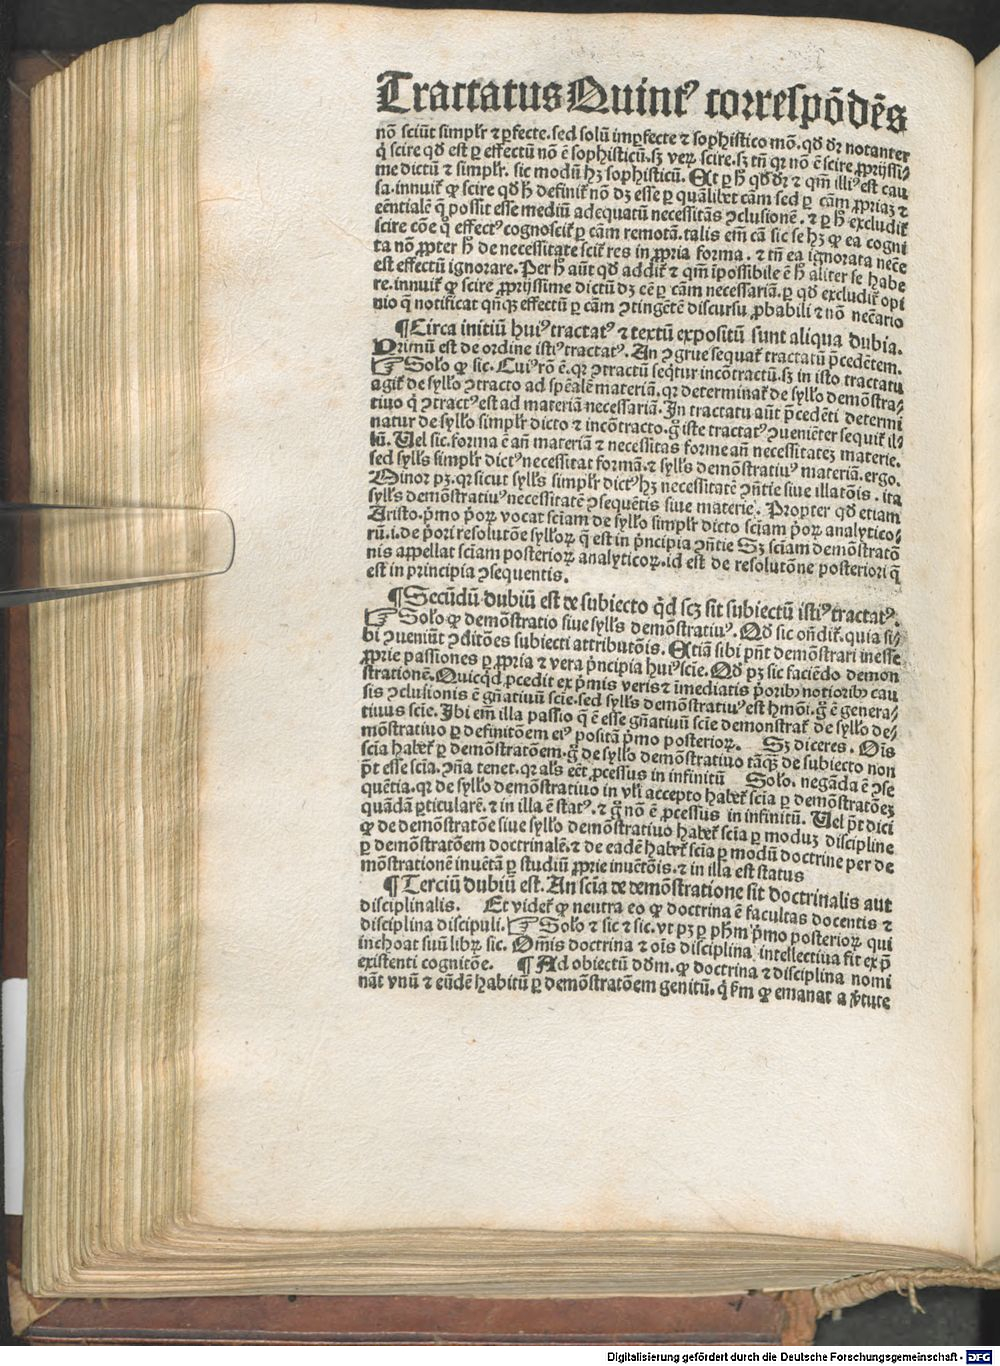 Tractatus Quintꝰ correſpōdēs
nō ſciūt ſimplr̄ ⁊ ꝑfecte. ſed ſolū imꝑfecte ⁊ ſophiſtico mō. qd̄ dr̄ notanter
q̇ ſcire qd̄ eſt ꝑ effectū nō ē ſophiſticū. ſꝫ verꝝ ſcire. ſꝫ tn̄ qꝛ nō ē ſcire ꝓpriſſi⸗
me dictū ⁊ ſimplr̄. ſic modū hꝫ ſophiſticū. Et ꝑ h̄ qd̄ dr̄ ⁊ qm̄ illiꝰ eſt cau
ſa. innuit̄ ꝙ ſcire qd̄ h̄ definit̄ nō dꝫ eſſe ꝑ quālibet cām ſed ꝑ cām ꝓpriaꝫ ⁊
eēntialē q̄ poſſit eſſe mediū adequatū neceſſitās ꝯcluſionē. ⁊ ꝑ h̄ excludit̄
ſcire cōe q̊ effectꝰ cognoſcit̄ ꝑ cām remotā. talis em̄ cā ſic ſe hꝫ ꝙ ea cogni
ta nō ꝓpter h̄ de neceſſitate ſcit̄ res in ꝓpria forma. ⁊ tn̄ ea ignorata necē
eſt effectū ignorare. Per h̄ aūt qd̄ addit̄ ⁊ qm̄ īpoſſibile ē h̄ aliter ſe habe
re. innuit̄ ꝙ ſcire ꝓprijſſime dictū dꝫ eē ꝑ cām neceſſariā. ꝑ qd̄ excludit̄ opi
nio q̄ notificat qn̄qꝫ effectū ꝑ cām ꝯtingētē diſcurſu ꝓbabili ⁊ nō neceārio
¶ Circa initiū huiꝰ tractatꝰ ⁊ textū expoſitū ſunt aliqua dubia.
Primū eſt de ordine iſtiꝰ tractatꝰ. An ꝯgrue ſequat̄ tractatū p̄cedētem.
☞ Solo ꝙ ſic. Cuiꝰ rō ē. qꝛ ꝯtractū ſeq̄tur incōtractū. ſꝫ in iſto tractatu
agit̄ de ſyllo ꝯtracto ad ſpēalē materiā. qꝛ determinat̄ de ſyllo demōſtra⸗
tiuo q̇ ꝯtractꝰ eſt ad materiā neceſſariā. In tractatu aūt p̄cedēti determi
natur de ſyllo ſimplr̄ dicto ⁊ incōtracto. g̊ iſte tractatꝰ ꝯueniēter ſequit̄ il⸗
lū. Uel ſic. forma ē añ materiā ⁊ neceſſitas forme añ neceſſitateꝫ materie.
ſed ſylls ſimplr̄ dictꝰ neceſſitat formā. ⁊ ſylls demōſtratiuꝰ materiā. ergo.
Minor pꝫ. qꝛ ſicut ſylls ſimplr̄ dictꝰ hꝫ neceſſitatē ꝯñtie ſiue illatōis. ita
ſylls demōſtratiuꝰ neceſſitatē ꝯſequētis ſiue materie. Propter qd̄ etiam
Ariſto. p̄mo p̄orꝝ vocat ſciam de ſyllo ſimplr̄ dicto ſciam p̄orꝝ analytico⸗
rū. i. de p̄ori reſolutōe ſyllorꝝ q̄ eſt in p̄ncipia ꝯñtie Sꝫ ſciam demōſtratō
nis appellat ſciam poſteriorꝝ analyticorꝝ. id eſt de reſolutōne poſteriori q̄
eſt in principia ꝯſequentis.
¶ Secūdū dubiū eſt de ſubiecto q̇d ſcꝫ ſit ſubiectū iſtiꝰ tractatꝰ.
☞ Solo ꝙ demōſtratio ſiue ſylls demōſtratiuꝰ. Qd̄ ſic oñdit̄. quia ſi⸗
bi ꝯueniūt ꝯditōes ſubiecti attributōis. Etiā ſibi pn̄t demōſtrari ineſſe
ꝓprie paſſiones ꝑ ꝓpria ⁊ vera p̄ncipia huiꝰ ſcie. Qd̄ pꝫ ſic faciēdo demon
ſtrationē. Quicq̇d ꝓcedit ex p̄mis veris ⁊ īmediatis p̄oribꝰ notioribꝰ cau
ſis ꝯcluſionis ē gn̄atiuū ſcie. ſed ſylls demōſtratiuꝰ eſt hmōi. g̊ ē genera⸗
tiuus ſcie. Ibi em̄ illa paſſio q̄ ē eſſe gn̄atiuū ſcie demonſtrat̄ de ſyllo de⸗
mōſtratiuo ꝑ definitōem eiꝰ poſitā p̄mo poſteriorꝝ. Sꝫ diceres. Oīs
ſcia habet̄ ꝑ demōſtratōem. g̊ de ſyllo demōſtratiuo tāq̄ꝫ de ſubiecto non
pōt eſſe ſcia. ꝯña tenet. qꝛ als eēt ꝓceſſus in infinitū Solo. negāda ē ꝯſe
quētia. qꝛ de ſyllo demōſtratiuo in vlī accepto habet̄ ſcia ꝑ demōſtratōeꝫ
quādā ꝑticularē. ⁊ in illa ē ſtatꝰ. ⁊ g̊ nō ē ꝓceſſus in infinitū. Uel pōt dici
ꝙ de demōſtratōe ſiue ſyllo demōſtratiuo habet̄ ſcia ꝑ moduꝫ diſcipline
ꝑ demōſtratōem doctrinalē. ⁊ de eadē habet̄ ſcia ꝑ modū doctrine per de
mōſtrationē inuētā ꝑ ſtudiū ꝓprie inuētōis. ⁊ in illa eſt ſtatus
¶ Terciū dubiū eſt. An ſcia de demōſtratione ſit doctrinalis aut
diſciplinalis. Et videt̄ ꝙ neutra eo ꝙ doctrina ē facultas docentis ⁊
diſciplina diſcipuli. ☞ Solo ⁊ ſic ⁊ ſic. vt pꝫ ꝑ phm̄ p̄mo poſteriorꝝ qui
inchoat ſuū librꝝ ſic. Omīs doctrina ⁊ oīs diſciplina intellectiua fit ex p̄
exiſtenti cognitōe. ¶ Ad obiectū dd̄m. ꝙ doctrina ⁊ diſciplina nomi
nāt vnū ⁊ eūdē habitū ꝑ demōſtratōem genitū. q̇ ẜm ꝙ emanat a ꝟtute
Digitalisierung gefördert durch die Deutsche Forschungsgemeinschaft - DFG